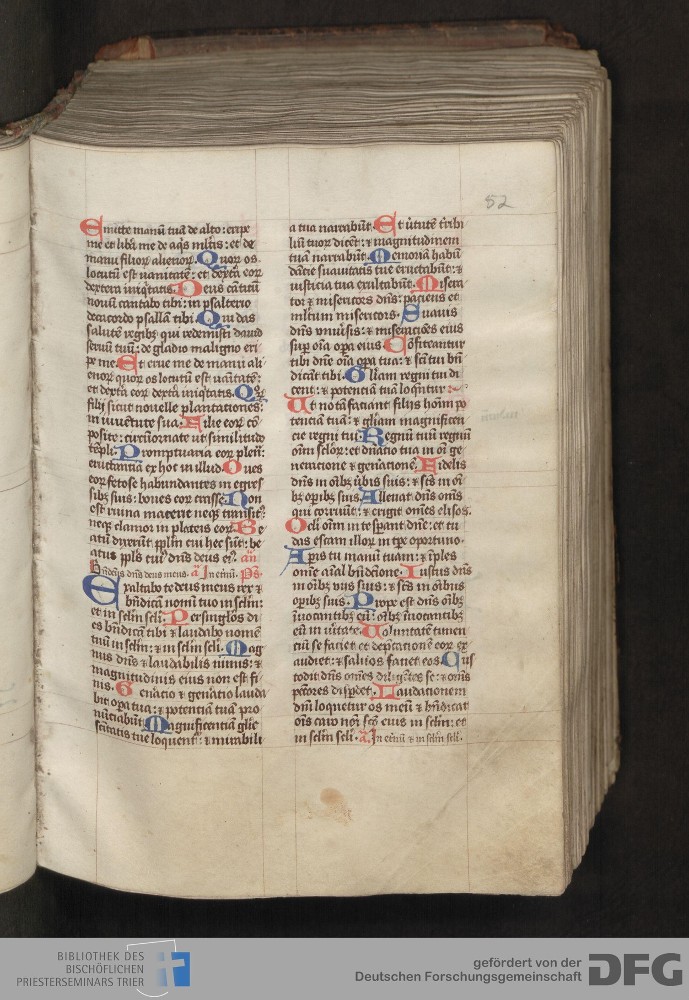 52
Emitte manū tuā de alto: eripe
me et liba me de aq̄s mltis: et de
manu filioꝝ alienoꝝ. Quoꝝ os
locutū est vanitatē: et dextā eoꝝ
dextera iniq̄tatis. Deus cāticū
novū cantabo tibi: in psalterio
decacordo psallā tibi. Qui das
salutē regibꝫ qui redemisti david
servū tuū: de gladio maligno eri
pe me. Et erue me de manu ali
enoꝝ quoꝝ os locutū est vāitatē:
et dextā eoꝝ dextā iniq̄tatis. Quoꝝ
filij sicut novelle plantationes:
in iuvētute sua. Filie eoꝝ cō
posite: circūornate ut similitudo
tēpli. Promptuaria eoꝝ plena:
eructantia ex hoc in illud. Oves
eoꝝ fetose habundantes in egres
sibꝫ suis: boves eoꝝ crasse. Non
est ruina macerie neqꝫ transitꝰ:
neqꝫ clamor in plateis eoꝝ. Be
atū dixerūt pplm cui hec sūt: be
atus ppls cuiꝰ dn̄s deus eiꝰ. an̄
Bn̄dictꝰ dn̄s deus meus. a In etnū. Ps
Exaltabo te deus meus rex ⁊
bn̄dicā nomī tuo in seclm:
et in seclm scli. Per singlos di
es bn̄dicā tibi ⁊ laudabo nomē
tuū in seclm: ⁊ in seclm scli. Mag
nus dn̄s ⁊ laudabilis nimis: ⁊
magnitudinis eius non est fi
nis. Generatio ⁊ genatio lauda
bit opa tua: ⁊ potentiā tuā pro
nūciabūt. Magnificentiā glie
scitatis tue loquent: ⁊ mirabili
a tua narrabūt. Et virtutē tribi
liū tuoꝝ dicēt: ⁊ magnitudinem
tuā narrabūt. Memoriā habū
dācie suavitatis tue eructabūt: ⁊
iusticia tua exultabūt. Misera
tor ⁊ misericors dn̄s: paciens et
mltum misericors. Suavis
dn̄s univsis: ⁊ miseracōes eius
sup om̄ia opa eius. Cōfiteantur
tibi dn̄e om̄ia opa tua: ⁊ scī tui bn̄
dicāt tibi. Gliam regni tui di
cent: ⁊ potentiā tuā loquntur:
Ut notā faciant filijs hoīm po
tenciā tuā: ⁊ gliam magnificen
cie regni tui. Regnū tuū regnū
oīm scloꝝ: et dnatio tua in oī ge
neracione ⁊ genatione. Fidelis
dn̄s in oībꝫ vbis suis: ⁊ scs in oī
bꝫ opibꝫ suis. Allevat dn̄s om̄s
qui corruūt: ⁊ erigit om̄es elisos.
Oculi oīm in te spant dn̄e: et tu
das escam illoꝝ in tpe oportuno.
Aperis tu manū tuam: ⁊ īples
om̄e aīal bn̄dictione. Iustus dn̄s
in oībꝫ viis suis: ⁊ scs in oībus
opibꝫ suis. Prope est dn̄s oībꝫ
īvocantibꝫ eū: oībꝫ īvocantibꝫ
eū in vitate. Volūtatē timen
ciū se faciet et depcationē eoꝝ ex
audiet: ⁊ salvos faciet eos. Cus
todit dn̄s om̄es diligētes se: ⁊ om̄s
pctores dispdet. Laudationem
dni loquetur os meū: ⁊ bn̄dicat
om̄s caro noī scō eius in seclm: et
in seclm scli. a In etnū ⁊ in seclm scli.
BIBLIOTHEK DES
BISCHÖFLICHEN
PRIESTERSEMINARS TRIER
gefördert von der
Deutschen Forschungsgemeinschaft
DFG